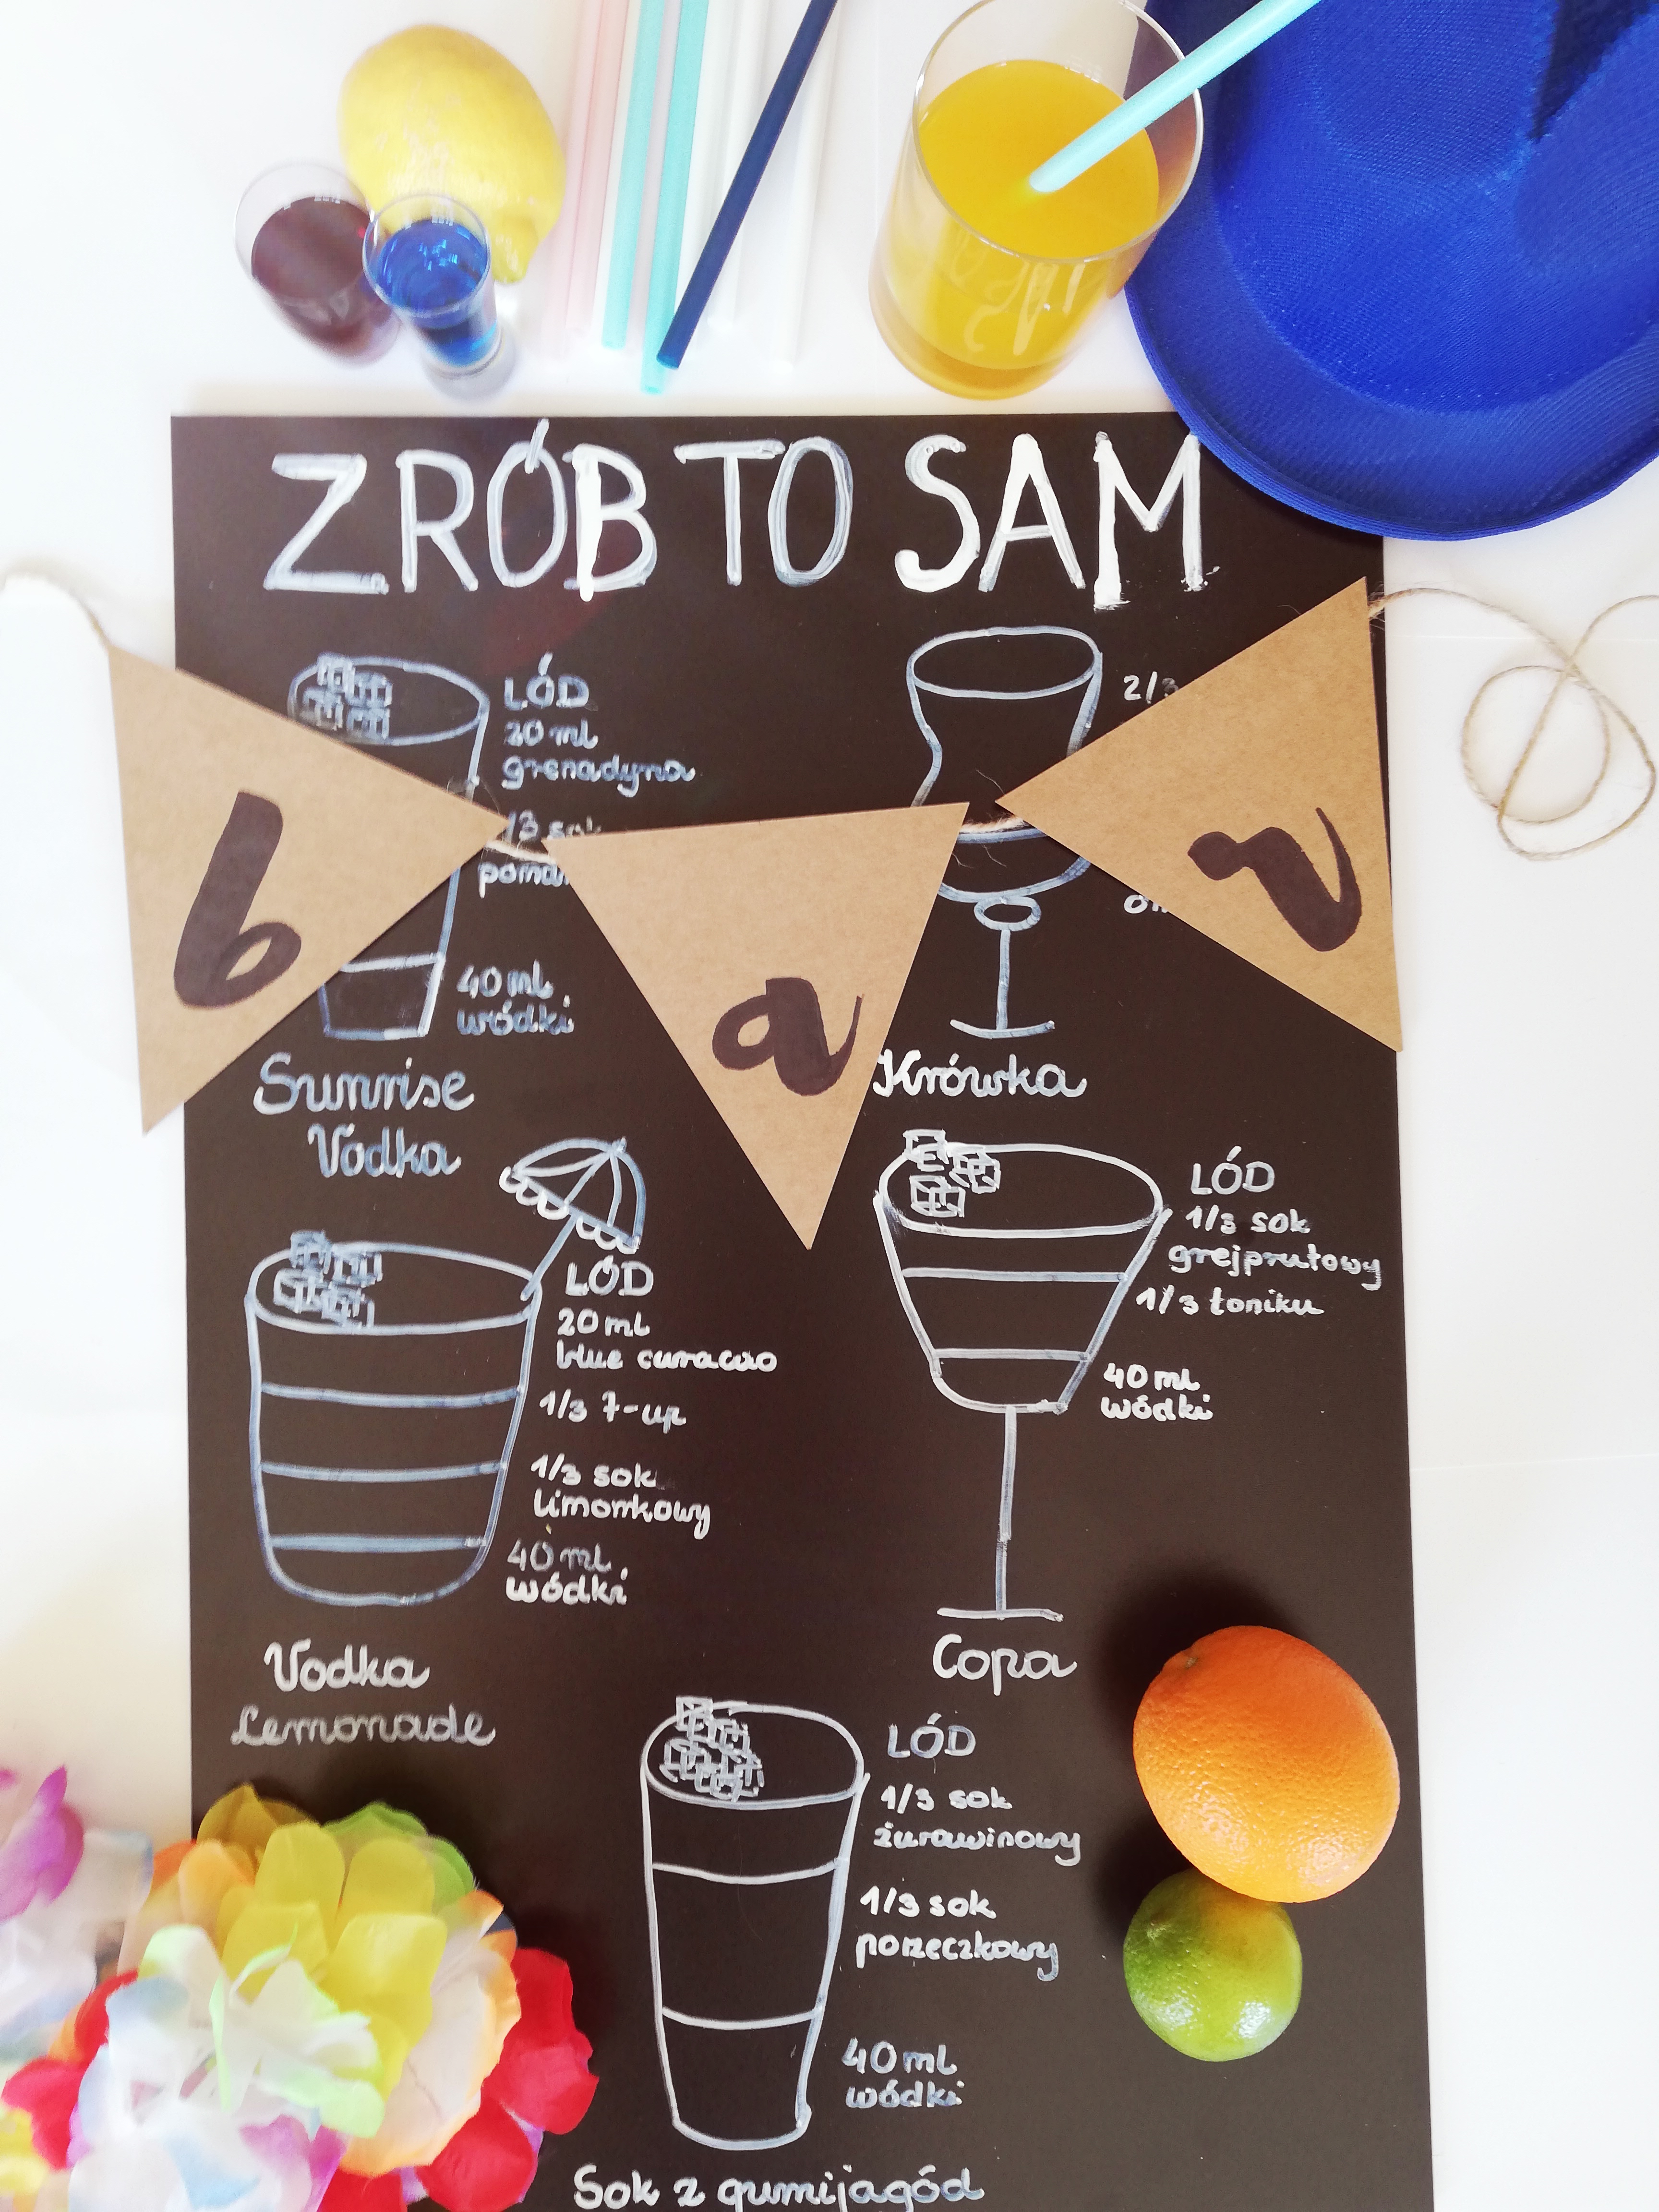 ZRÓB TO SAM
b a r
LÓD
20 ml
grenadyna
40 ml
wódki
Sunrise
Vodka
2/3
Krówka
LÓD
20 ml
blue curacao
1/3 7-up
1/3 sok
limonkowy
40 ml
wódki
Vodka
Lemonade
LÓD
1/3 sok
grejprutowy
1/3 toniku
40 ml
wódki
Copa
LÓD
1/3 sok
żurawinowy
1/3 sok
porzeczkowy
40 ml
wódki
Sok z gumijagód